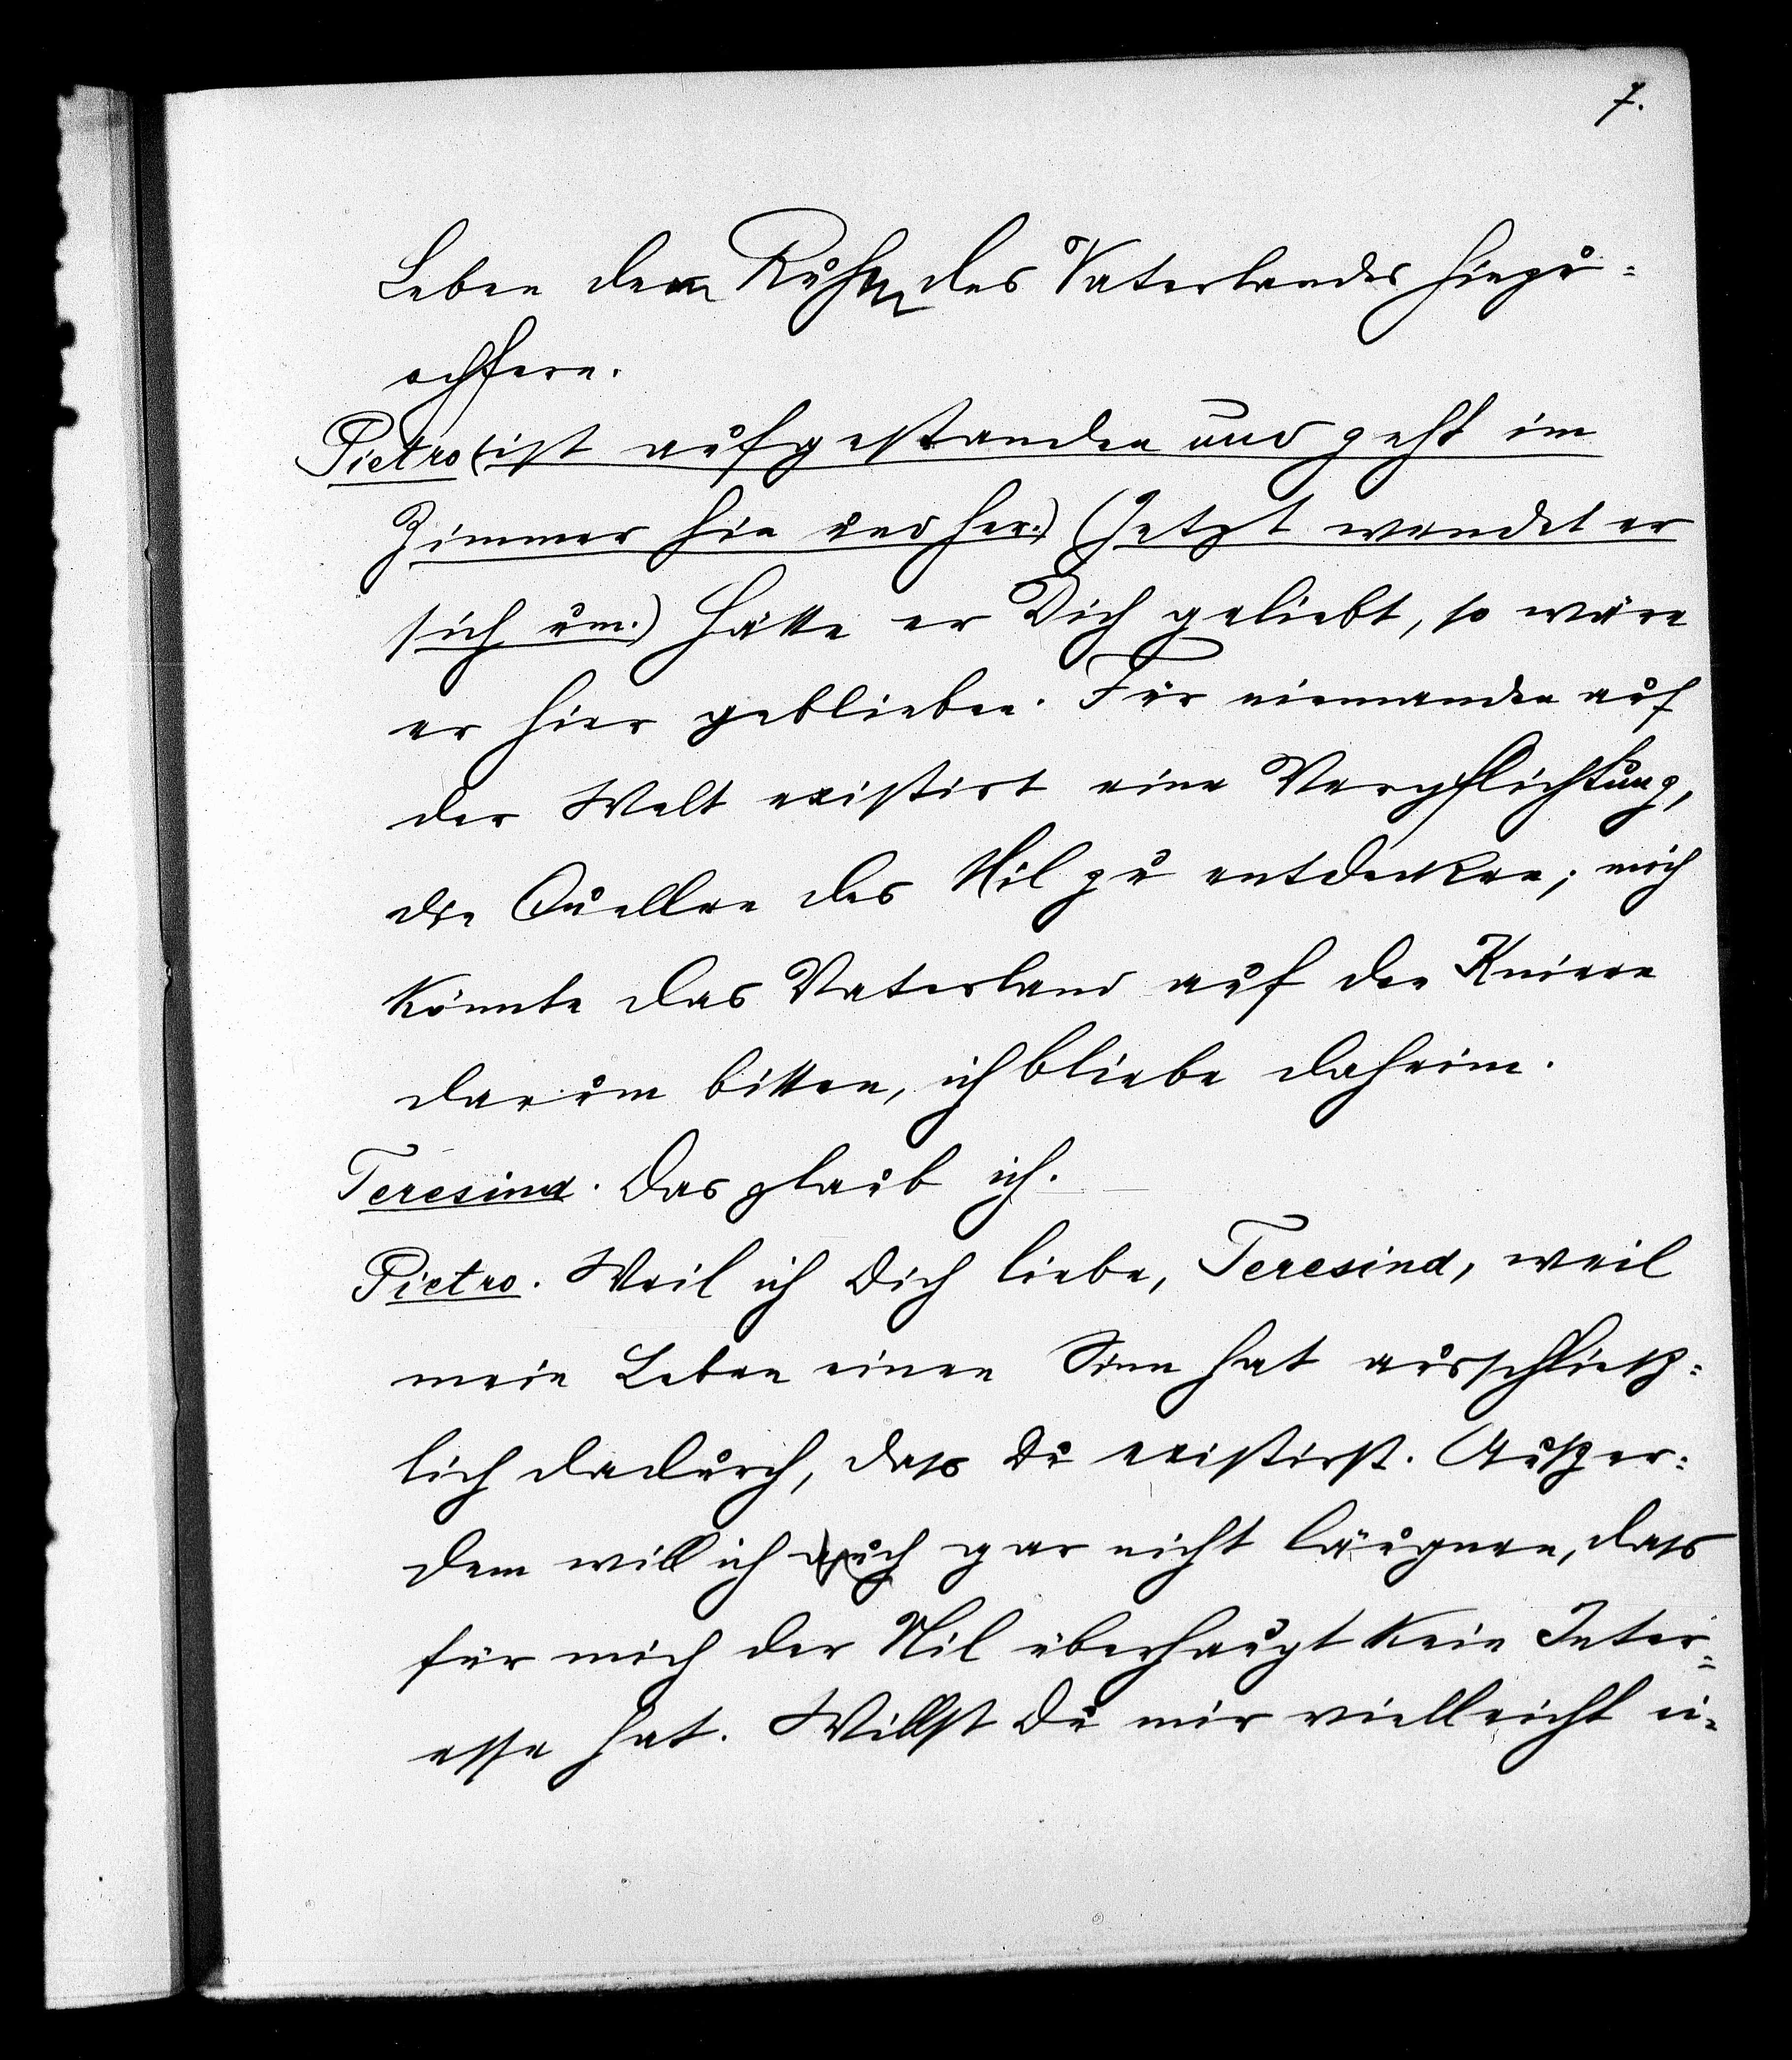 7.
Leben dem Ruhm des Vaterlandes hinzu=
opfern.
Pietro (ist aufgestanden und geht im
Zimmer hin und her.) (Jetzt wendet er
sich um.) Hätte er Dich geliebt, so wäre
er hier geblieben. Für niemanden auf
der Welt existirt eine Verpflichtung,
die Quellen des Nil zu entdecken; mich
könnte das Vaterland auf den Knieen
darum bitten, ich bliebe daheim.
Teresina. Das glaub ich.
Pietro. Weil ich Dich liebe, Teresina, weil
mein Leben einen Sinn hat ausschließ=
lich dadurch, dass Du existirst. Außer=
dem will ich auch gar nicht läugnen, dass
für mich der Nil überhaupt kein Inter=
esse hat. Willst Du mir vielleicht ei=